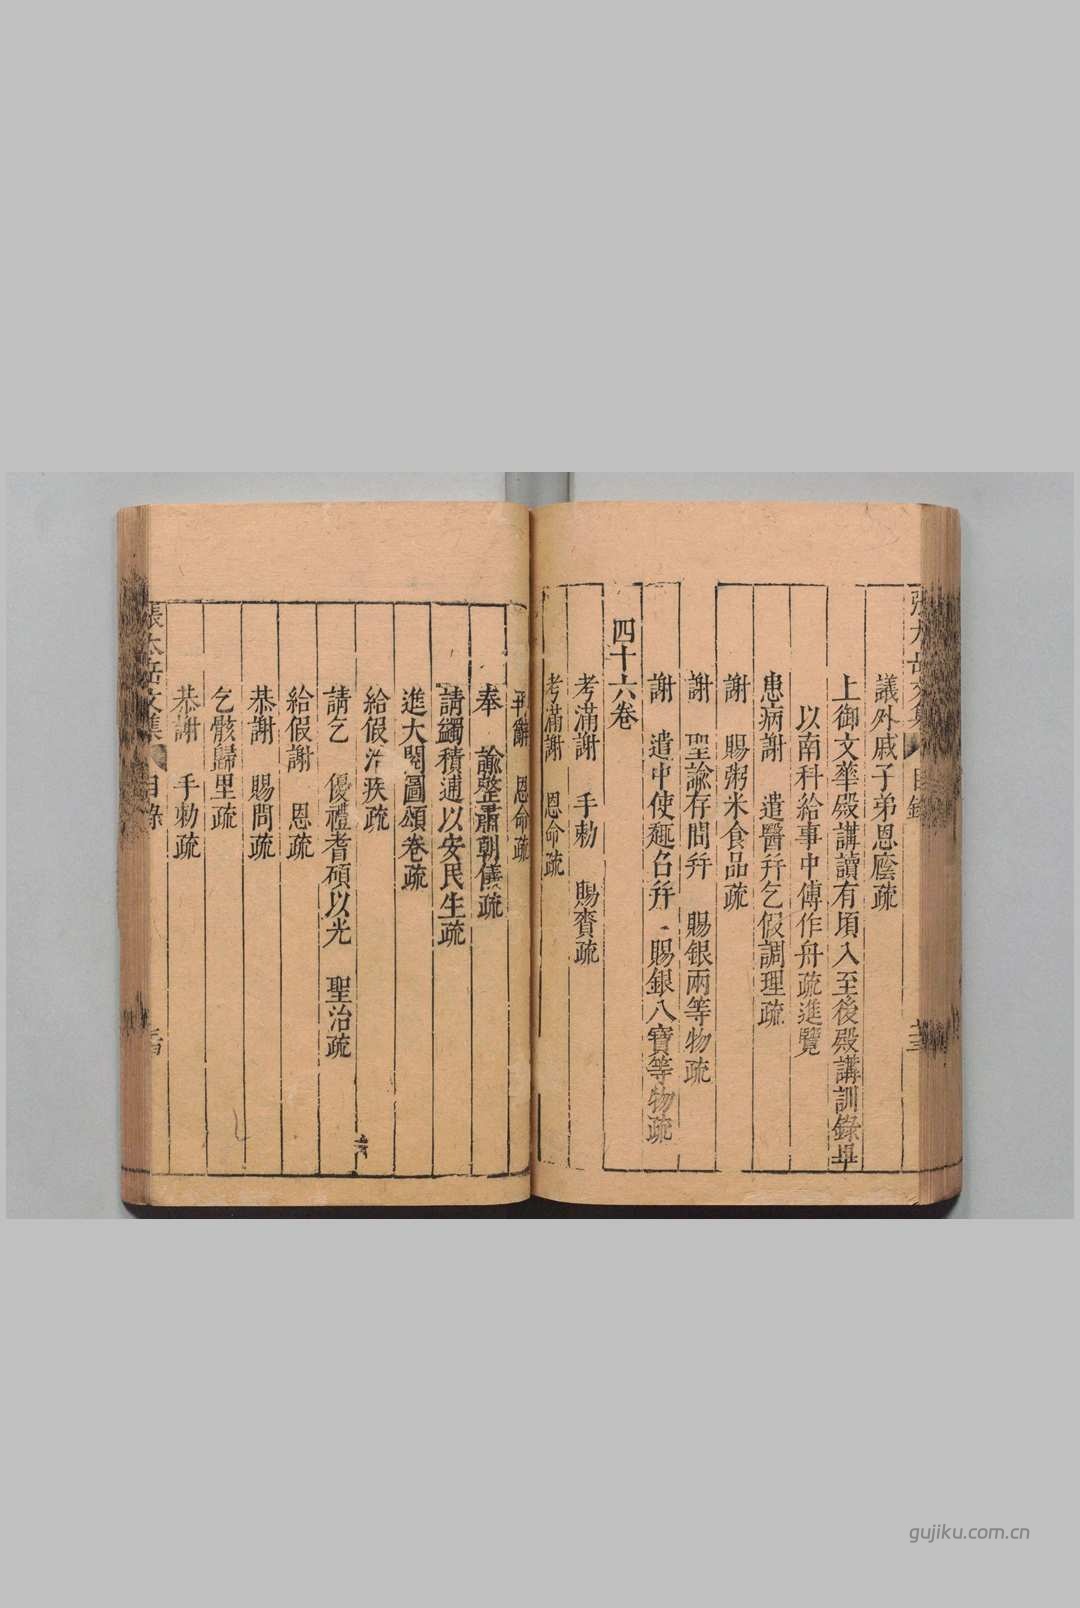 張太岳文集 目錄
議外戚子弟恩廕疏
上御文華殿講讀有頃入至後殿講訓錄畢
以南科給事中傅作舟疏進覽
患病謝 遣醫幷乞假調理疏
謝 賜粥米食品疏
謝 聖諭存問幷 賜銀兩等物疏
謝 遣中使趣召幷 賜銀八寶等物疏
四十六卷
考滿謝 手勅 賜賚疏
考滿謝 恩命疏
再辭 恩命疏
奉 諭整肅朝儀疏
請蠲積逋以安民生疏
進大閱圖頌卷疏
給假治疾疏
請乞 優禮耆碩以光 聖治疏
給假謝 恩疏
恭謝 賜問疏
乞骸歸里疏
恭謝 手勅疏
張太岳文集 目錄
gujiku.com.cn